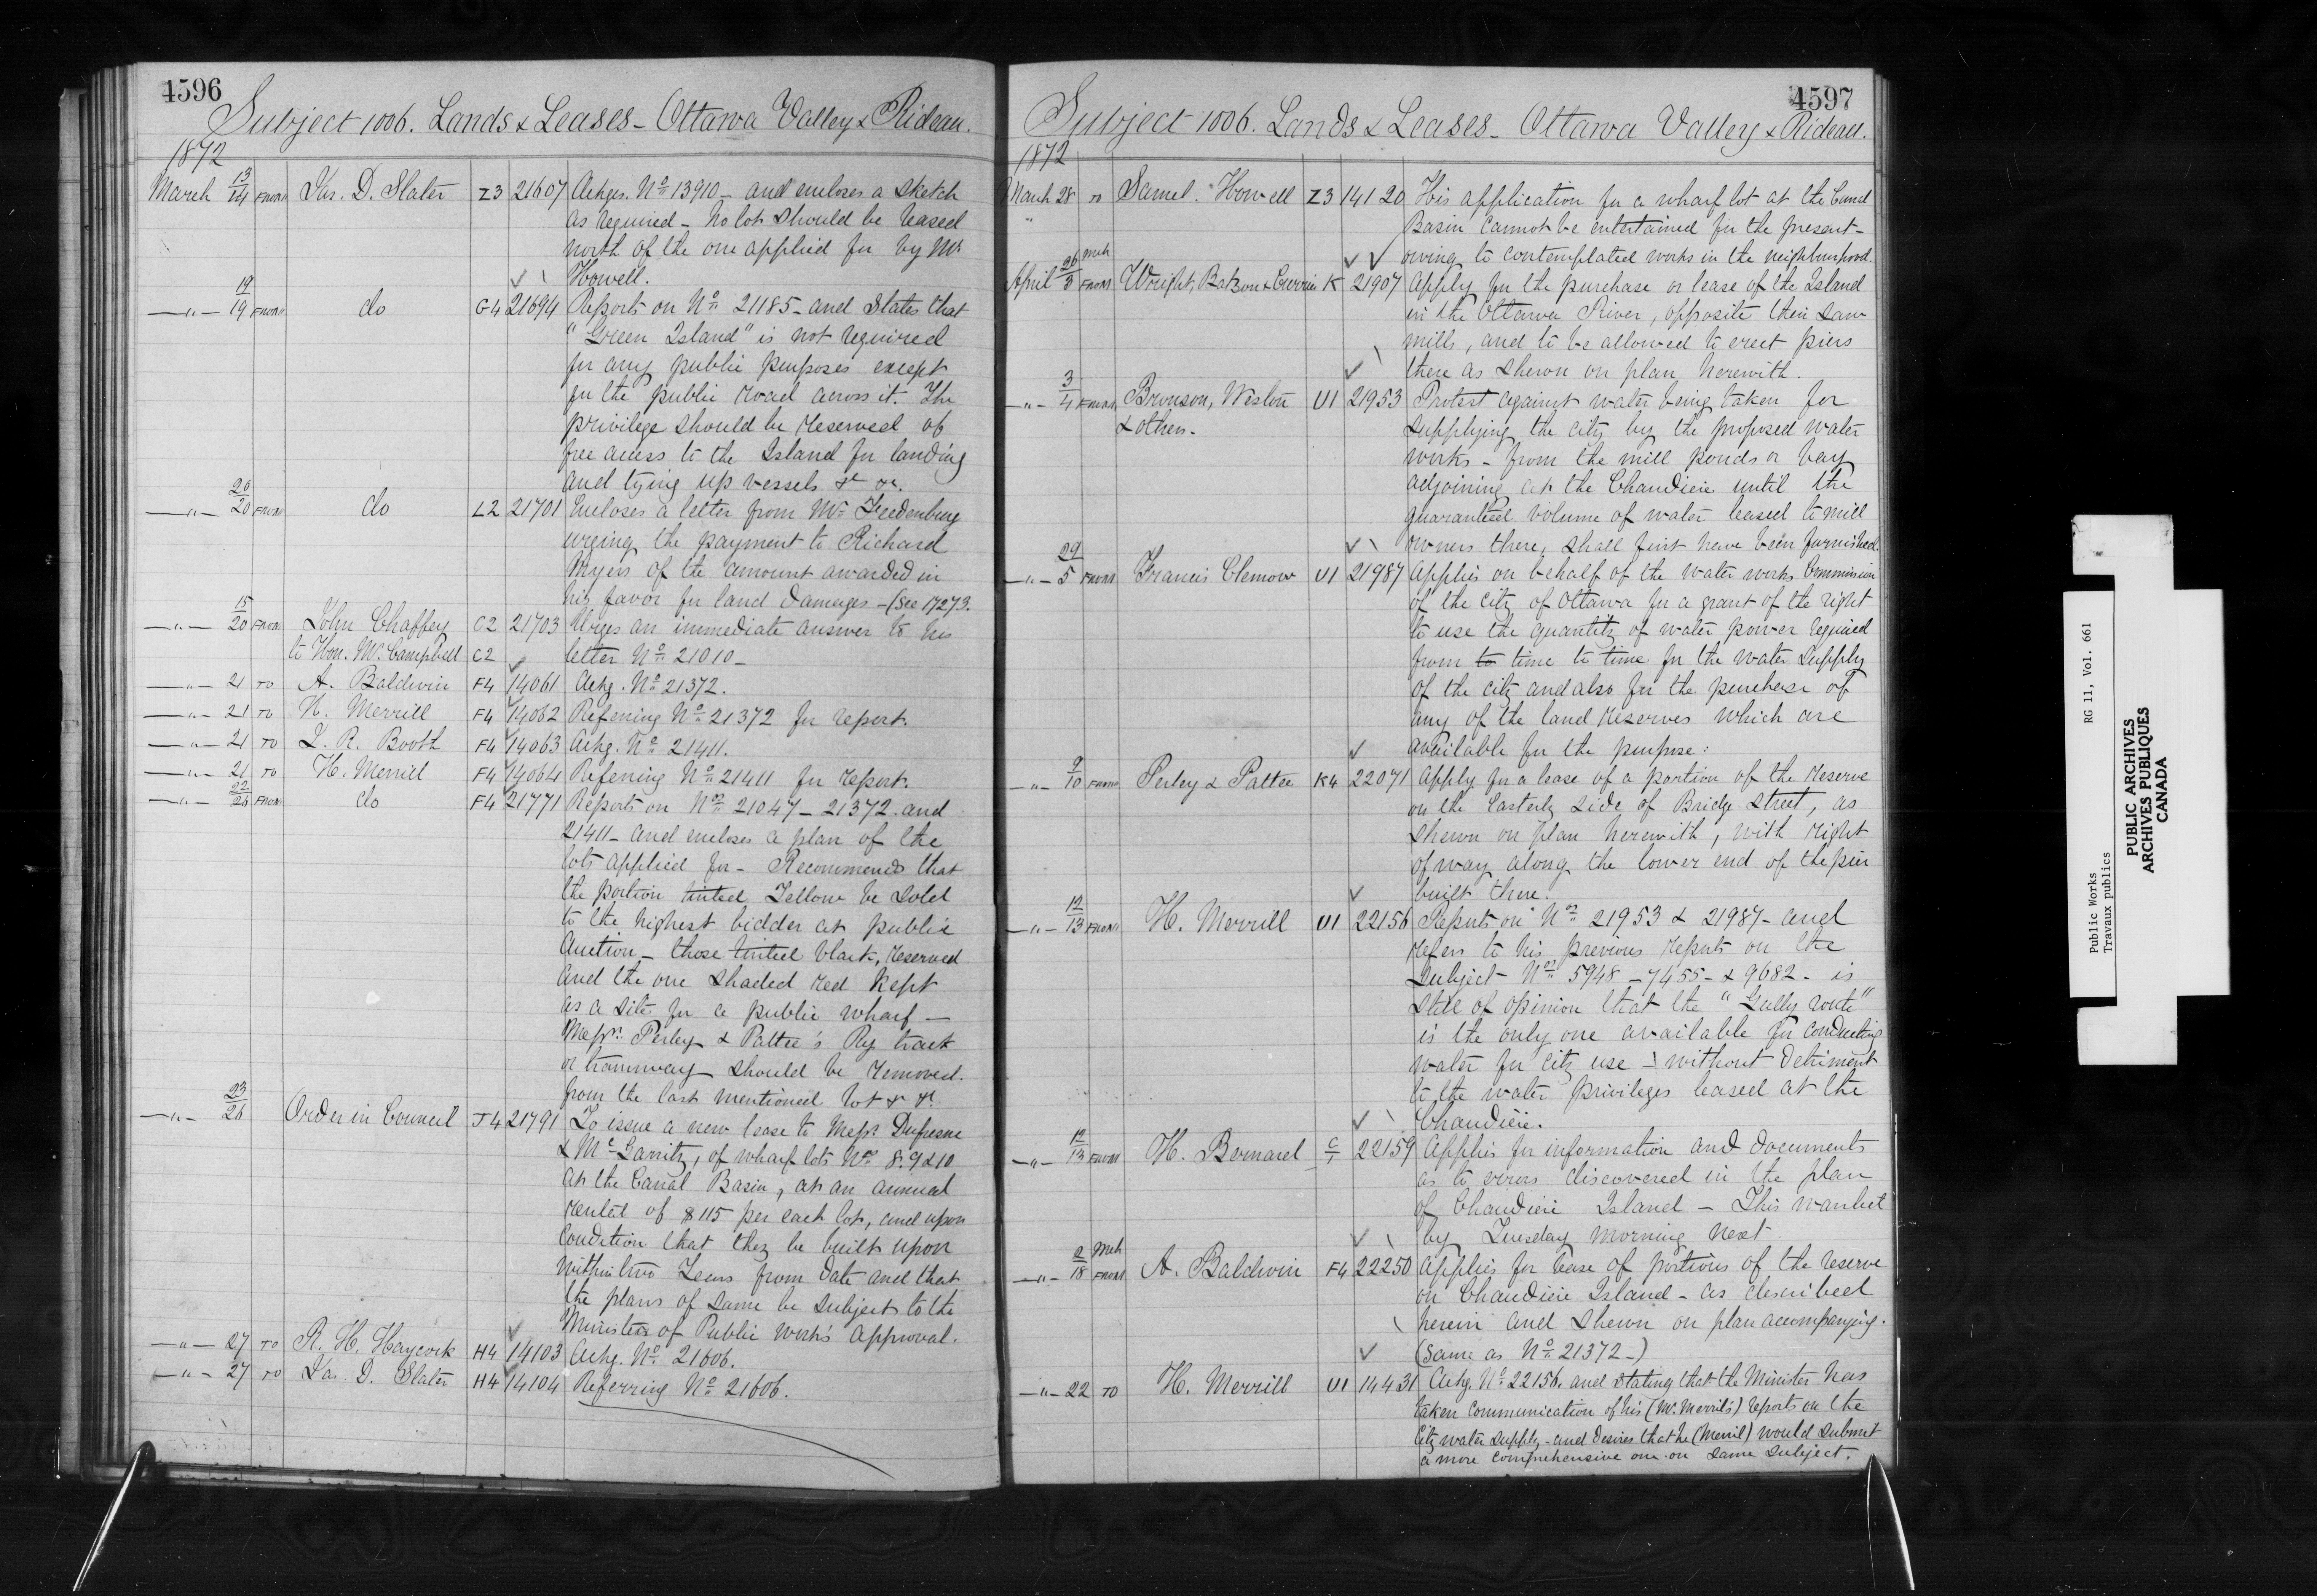 4596
Subject 1006. Lands & Leases - Ottawa Valley & Rideau.
1872
March 13/14 FROM Jas. D. Slater Z3 21607 Ackges. No 13910 - and encloses a sketch
as required - No lot should be leased
north of the one applied for by Mr
Howell.
—"— 19/19 FROM do G4 21694 Reports on No 21185 - and states that
"Green Island" is not required
for any public purposes except
for the public road across it. The
privilege should be reserved of
free access to the Island for landing
and tying up vessels &c &c.
—"— 20/20 FROM do L2 21701 Encloses a letter from Mr Freedenburg
urging the payment to Richard
Myers of the amount awarded in
his favor for land damages - (See 17273.
—"— 15/20 FROM John Chaffey C2 21703 Urges an immediate answer to his
to Hon. Mr. Campbell C2 letter No 21010 -
—"— 21 TO A. Baldwin F4 14061 Ackg. No 21372.
—"— 21 TO H. Merrill F4 14062 Refering No 21372 for report.
—"— 21 TO J. R. Booth F4 14063 Ackg. No 21411.
—"— 21 TO H. Merrill F4 14064 Refering No 21411 for report.
—"— 22/26 FROM do F4 21771 Reports on Nos 21047 - 21372. and
21411 - and encloses a plan of the
lots applied for - Recommends that
the portion tinted Yellow be sold
to the highest bidder at public
Auction - those tinted black, reserved
and the one shaded red kept
as a site for a public wharf -
Messrs. Perley & Pattee's Ry track
or tramway should be removed.
from the last mentioned lot &c &c.
—"— 23/26 Order in Council J4 21791 To issue a new lease to Messrs Dufresne
& McGarrity, of wharf lots Nos 8. 9 & 10
at the Canal Basin, at an annual
rental of $115 per each lot, and upon
Condition that they be built upon
within two Years from date and that
the plans of same be subject to the
Minister of Public Work's approval.
—"— 27 TO R. H. Haycock H4 14103 Ackg. No 21606.
—"— 27 TO Jas. D. Slater H4 14104 Referring No 21606.
4597
Subject 1006. Lands & Leases - Ottawa Valley & Rideau.
1872
March 28 TO Samel. Howell Z3 14120 His application for a wharf lot at the Canal
" Basin Cannot be entertained for the present -
owing to contemplated works in the neighbourhood.
April 26 Mch/3 FROM Wright, Batson & Currier K 21907 Apply for the purchase or lease of the Island
in the Ottawa River, opposite their saw
mills, and to be allowed to erect piers
there as shewn on plan herewith.
—"— 3/4 FROM Bronson, Weston U1 21953 Protest against water being taken for
& others. supplying the city by the proposed water
works - from the mill ponds or bay
adjoining at the Chaudière until the
guaranteed volume of water leased to mill
owners there, shall first have been furnished.
—"— 29/5 FROM Francis Clemow U1 21987 Applies on behalf of the Water works Commission
of the City of Ottawa for a grant of the right
to use the quantity of water power required
from to time to time for the Water Supply
of the city and also for the purchase of
any of the land reserves which are
available for the purpose:
—"— 9/10 FROM Perley & Pattee K4 22071 Apply for a lease of a portion of the reserve
on the Easterly side of Bridge Street, as
shewn on plan herewith, with right
of way along the lower end of the pier
built there.
—"— 12/13 FROM H. Merrill U1 22156 Reports on Nos 21953 & 21987 - and
refers to his previous reports on the
subject - Nos 5948 - 7455 - & 9682 - is
still of opinion that the "Gully route"
is the only one available for conducting
water for City use - without detriment
to the water privileges leased at the
Chaudière.
—"— 12/13 FROM H. Bernard C/1 22159 Applies for information and documents
as to errors discovered in the plan
of Chaudière Island - This wanted
by Tuesday morning next.
—"— 2 Mch/18 FROM A. Baldwin F4 22250 Applies for lease of portions of the reserve
on Chaudière Island - as described
herein and shewn on plan accompanying.
(Same as No 21372 -)
—"— 22 TO H. Merrill U1 14431 Ackg. No 22156. and stating that the Minister has
taken communication of his (Mr. Merrill's) reports on the
City water supply - and desires that he (Merrill) would submit
a more comprehensive one on same subject.
Public Works RG 11, Vol. 661
Travaux publics
PUBLIC ARCHIVES
ARCHIVES PUBLIQUES
CANADA